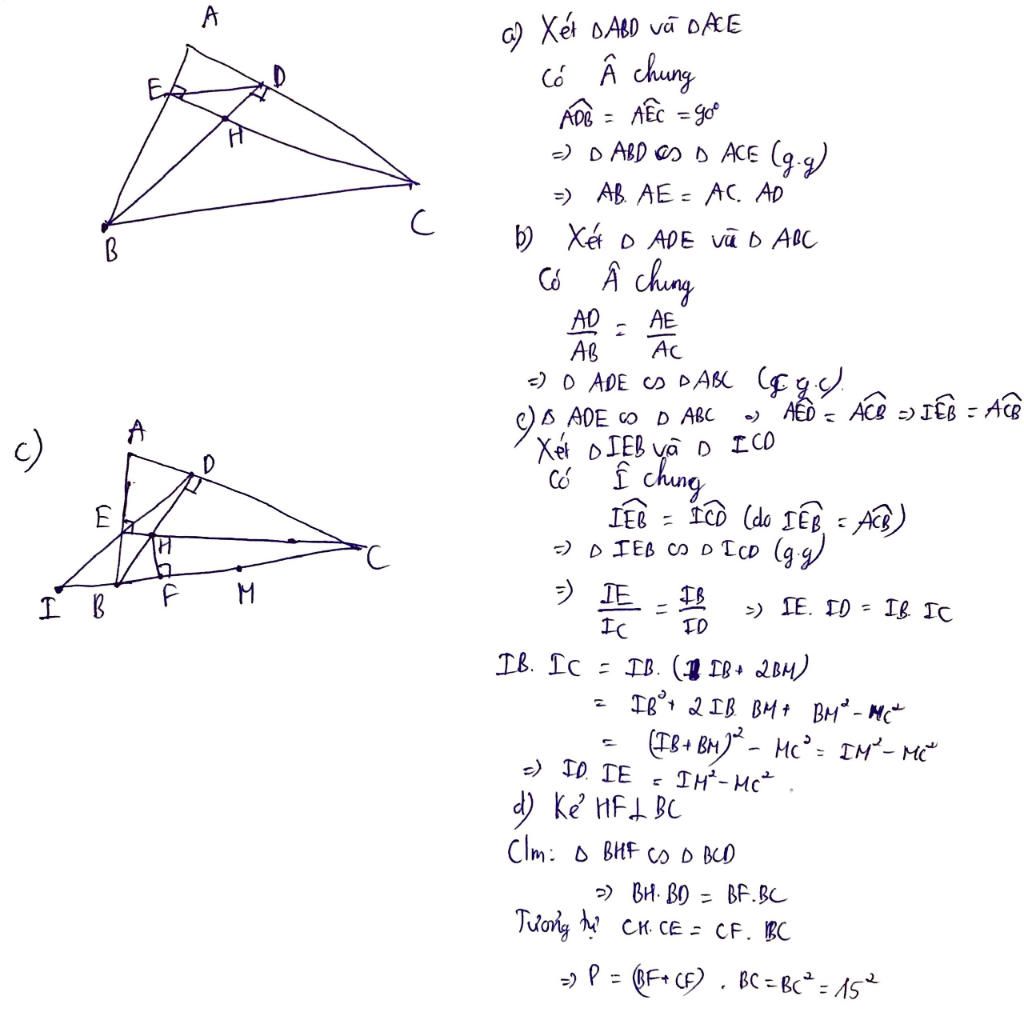 A
E
D
H
B
C
a) Xét ΔABD và ΔACE
Có Â chung
ADB̂ = AÊC = 90°
=> Δ ABD ∽ Δ ACE (g.g)
=> AB. AE = AC. AD
b) Xét Δ ADE và Δ ABC
Có Â chung
AD/AB = AE/AC
=> Δ ADE ∽ Δ ABC (c g.c)
c) Δ ADE ∽ Δ ABC => AÊD = AĈB => IÊB = AĈB
Xét Δ IEB và Δ ICD
Có Î chung
IÊB = IĈD (do IÊB = AĈB)
=> Δ IEB ∽ Δ ICD (g.g)
=> IE/IC = IB/ID => IE. ID = IB. IC
IB. IC = IB. (IB + 2BM)
= IB² + 2 IB. BM + BM² - MC²
= (IB + BM)² - MC² = IM² - MC²
=> ID. IE = IM² - MC².
d) Kẻ HF ⊥ BC
C/m: Δ BHF ∽ Δ BCD
=> BH. BD = BF. BC
Tương tự CH. CE = CF. BC
=> P = (BF + CF) . BC = BC² = 15²
c)
A
D
E
H
C
I
B
F
M